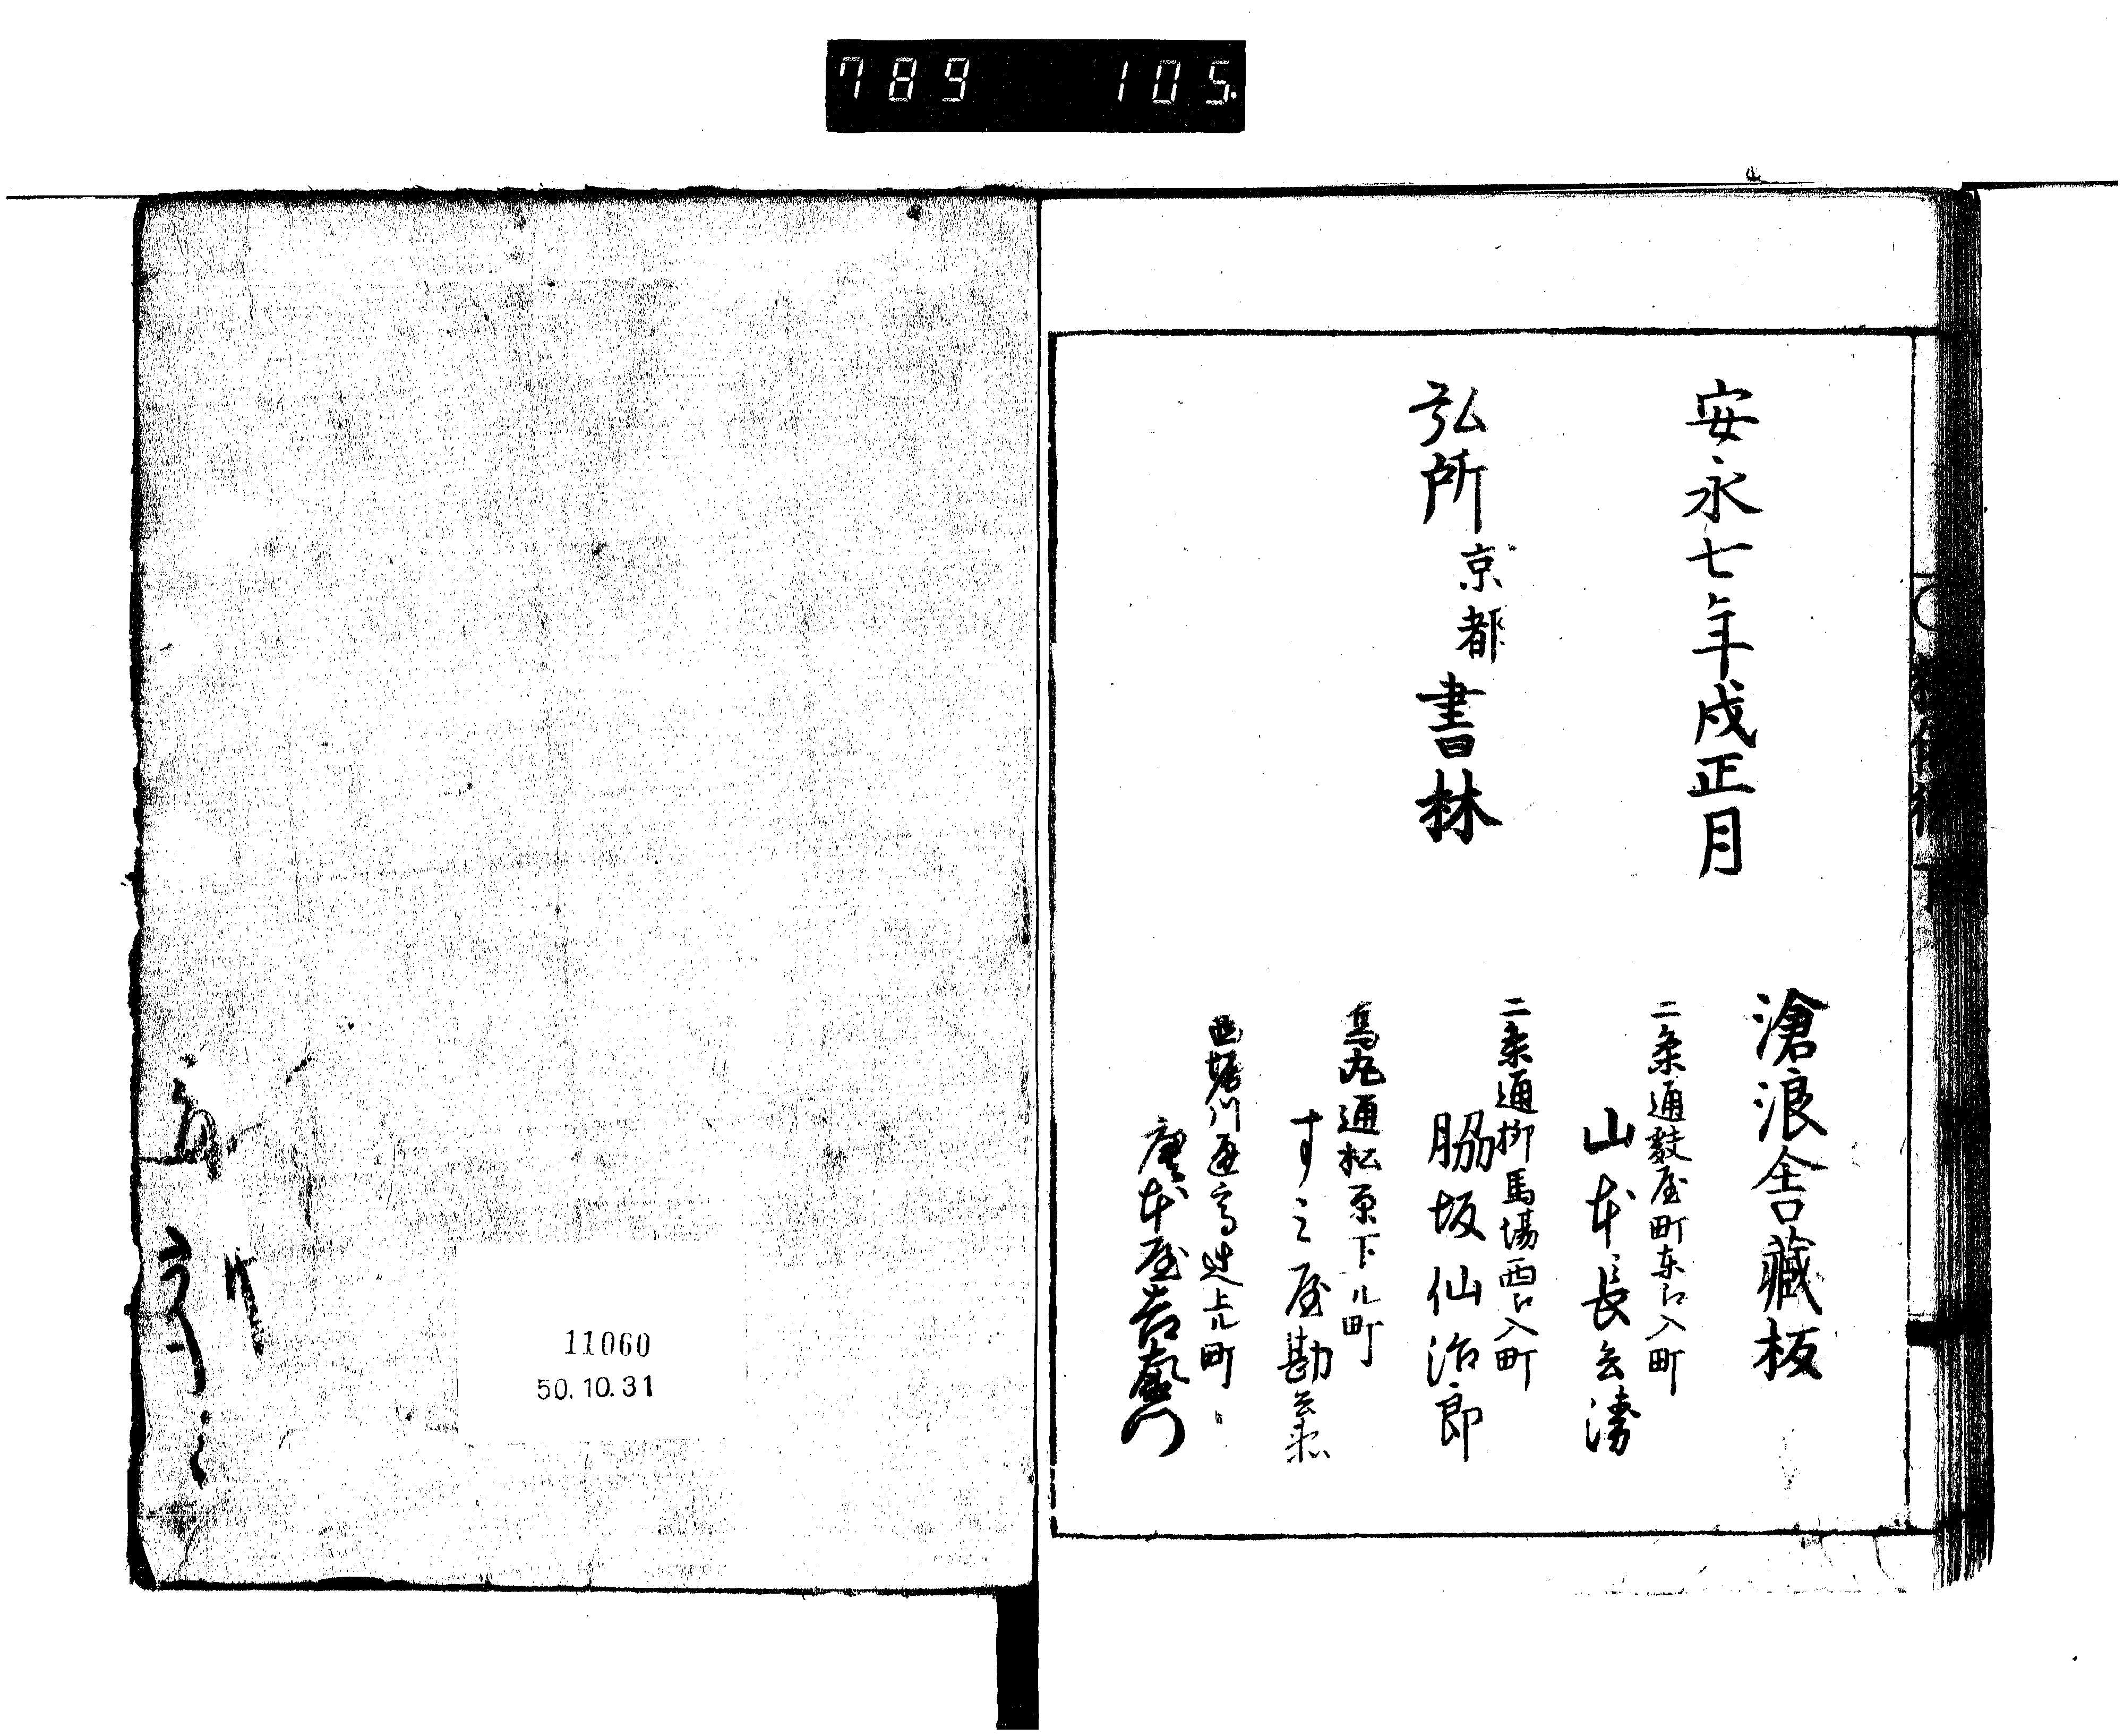 789 105.
滄浪舎藏板
安永七年戌正月
二条通麩屋町东江入町
山本長兵衛
弘所京都書林
二条通柳馬場西江入町
脇坂仙治郎
烏丸通松原下ル町
すみ屋勘兵衛
西堀川通高辻上ル町
唐本屋吉左衛門
11060
50.10.31